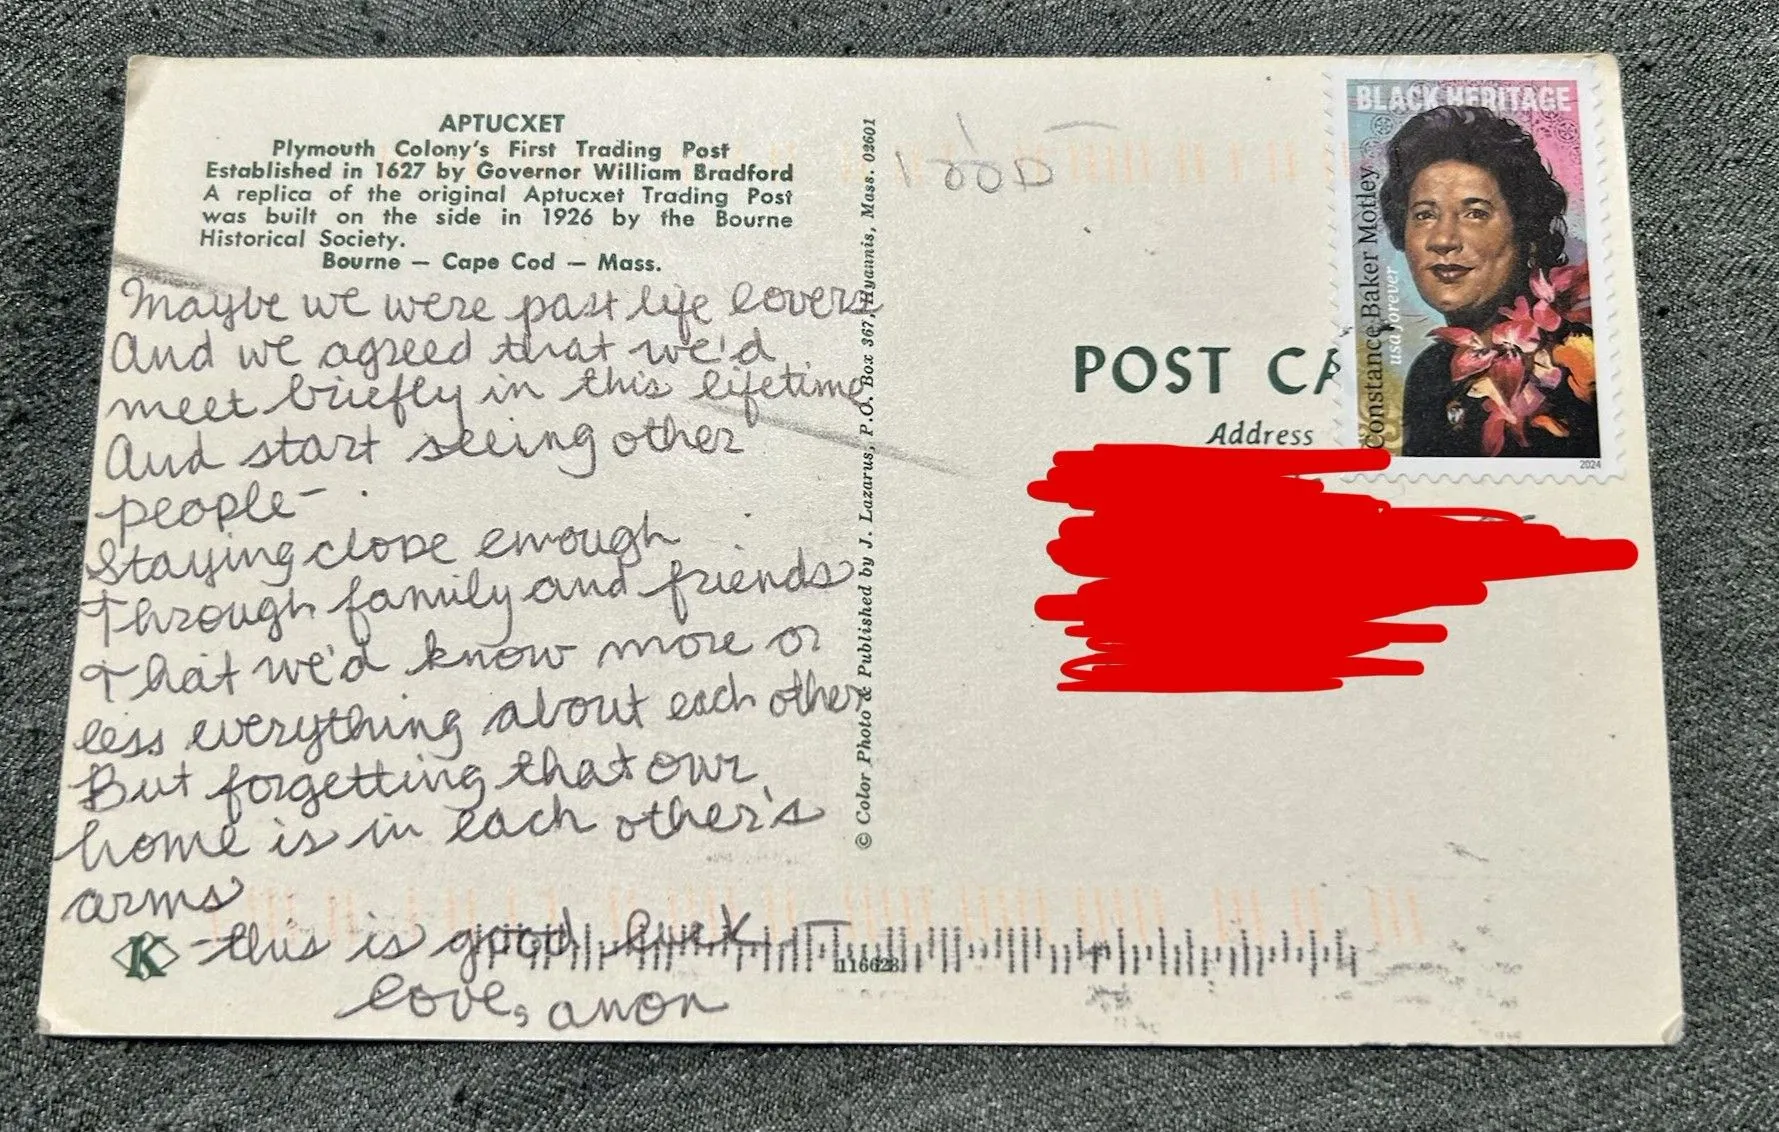 APTUCXET
Plymouth Colony's First Trading Post
Established in 1627 by Governor William Bradford
A replica of the original Aptucxet Trading Post
was built on the side in 1926 by the Bourne
Historical Society.
Bourne — Cape Cod — Mass.
Maybe we were past life lovers
And we agreed that we'd
meet briefly in this lifetime
And start seeing other
people—
Staying close enough
Through family and friends
That we'd know more or
less everything about each other
But forgetting that our
home is in each other's
arms
K
- this is good luck —
love, anon
116628
© Color Photo & Published by J. Lazarus, P.O. Box 367, Hyannis, Mass. 02601
POST CA
Address
BLACK HERITAGE
Constance Baker Motley
usa forever
2024